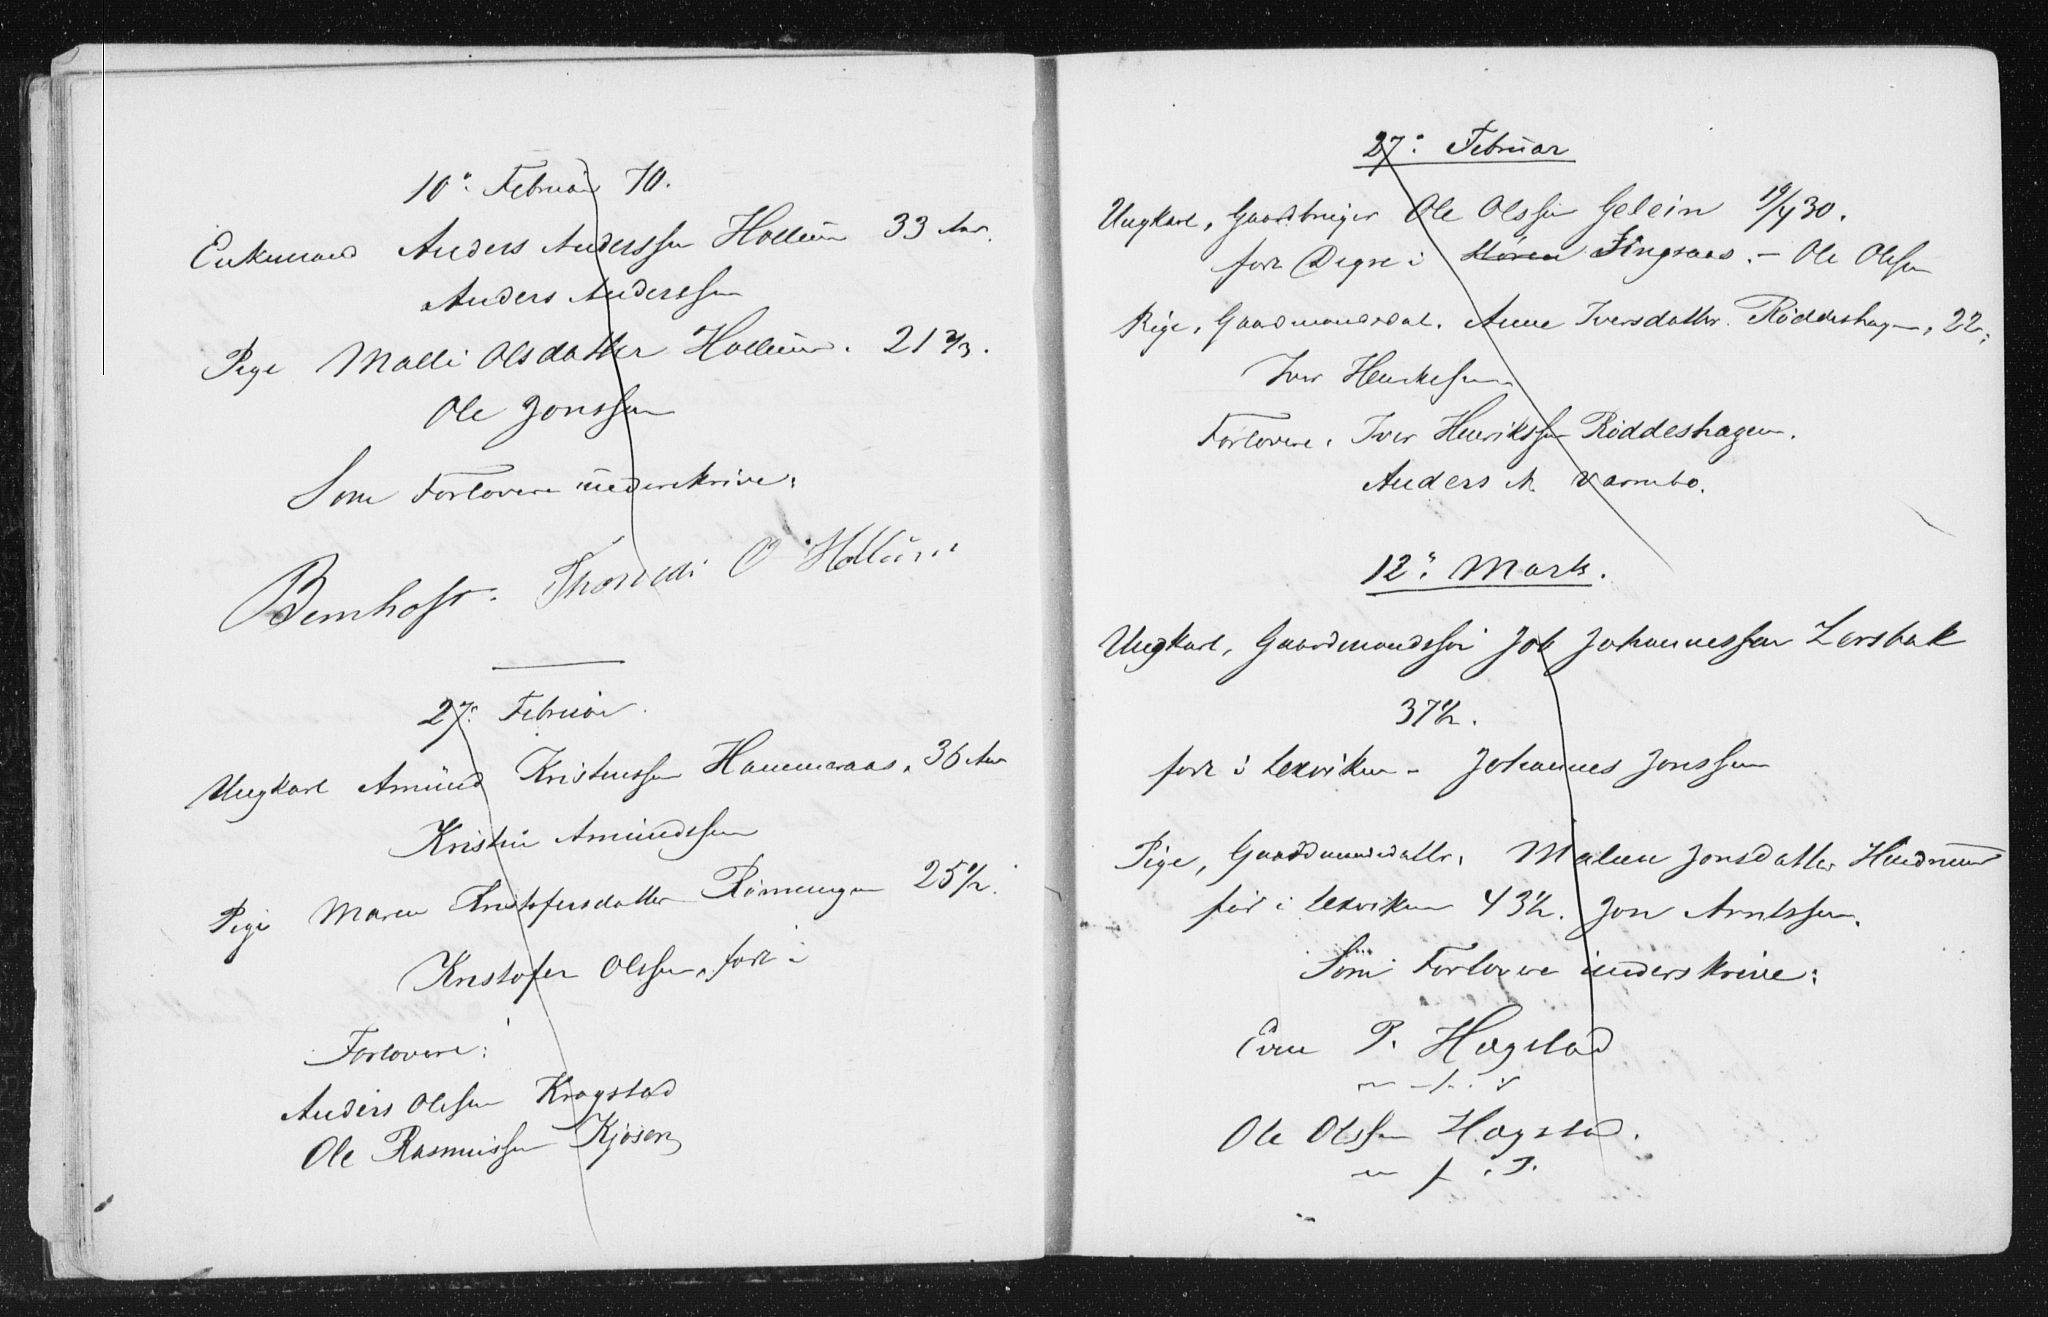 10de Februar 70.
Enkemand Anders Anderssen Hollum 33 Aar.
Anders Anderssen
Pige Malli Olsdatter Hollum. 21 2/3.
Ole Jonssen
Som Forlovere underskrive:
Bernhoft. O Hollum
27de Februar.
Ungkarl Amund Kristenssen Hammeraas, 36 Aar
Kristen Amundssen
Pige Maren Kristofersdatter 25 1/2.
Kristofer Olssen, født i
Forlovere:
Anders Olssen Krogstad
Ole Rasmussen Kjøsen
27de Februar
Ungkarl, Gaardbruger Ole Olssen 30.
født i Støren Singsaas. - Ole Olssen
Pige, Gaardmandsdat. Anne Iversdatter Røddeshagen, 22,
Iver Henriksen
Forlovere: Iver Henrikssen Røddeshagen.
Anders A. Varmbo.
12de Marts.
Ungkarl, Gaardmandssøn Job Johannessen Lersbak
37 1/2.
født i Lexviken - Johannes Jonssen
Pige, Gaardmandsdatter, Malen Jonsdatter
fød i Lexviken 43 1/2. Jon Arntssen.
Som Forlovere underskrive:
Even P. Hagstad
Ole Olssen Hagstad.